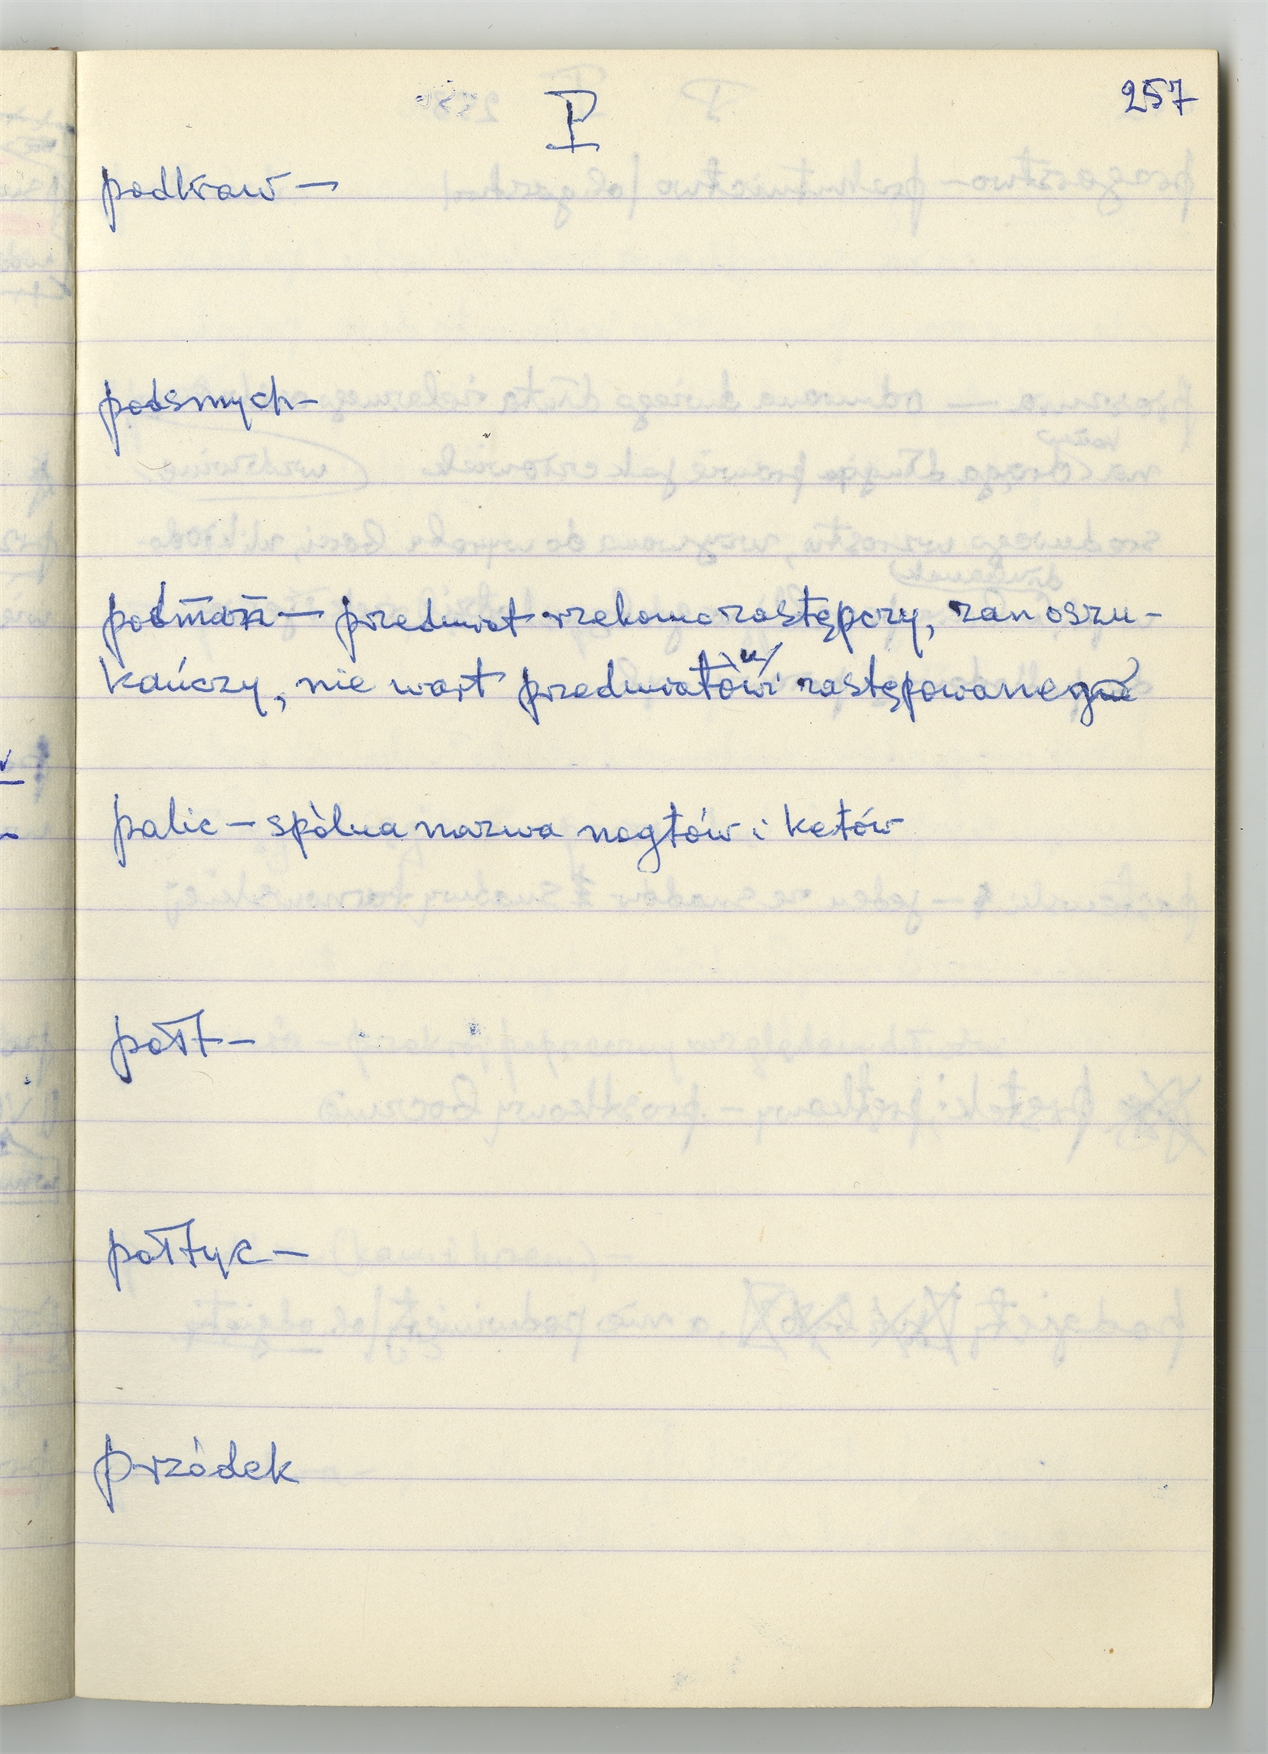 P
257
podkraw —
podsmych —
podmań — przedmiot rzekomo zastępczy, zan oszu-
kańczy, nie wart przedmiotu zastępowanego
palic — spólna nazwa nogtów i kotów
połt —
połtyc —
przódek